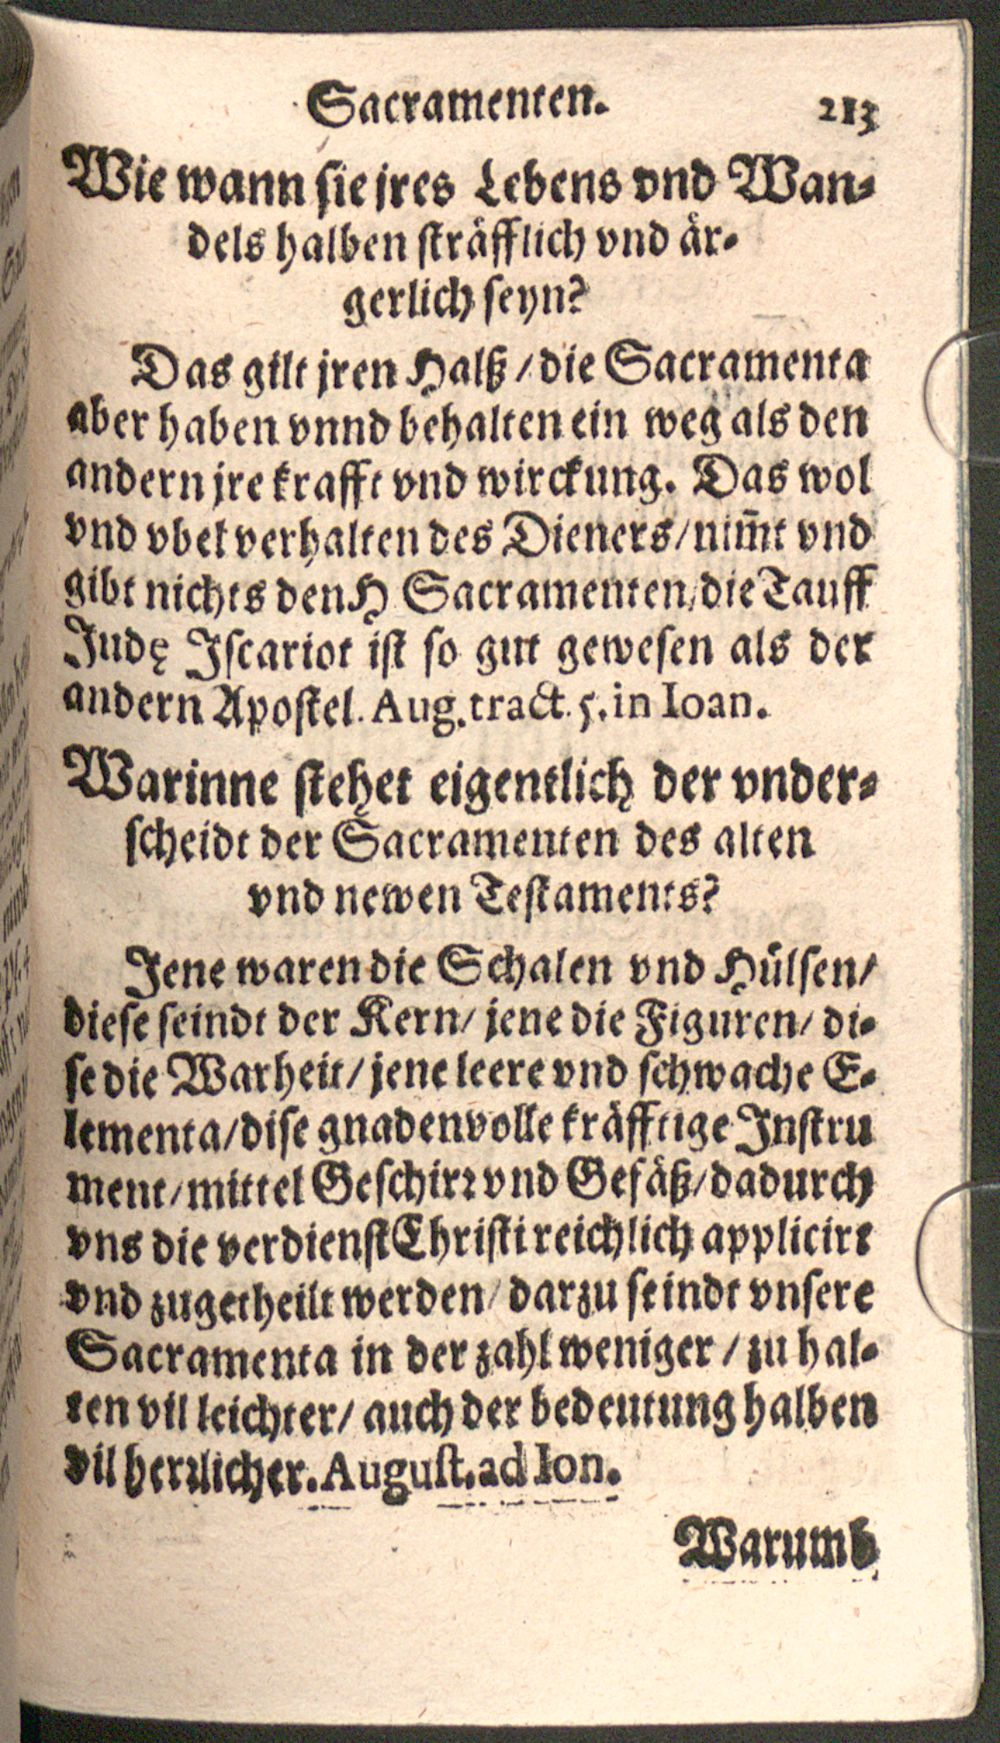 Sacramenten. 213
Wie wann sie jres Lebens vnd Wan-
dels halben sträfflich vnd är-
gerlich seyn?
Das gilt jren Halß / die Sacramenta
aber haben vnnd behalten ein weg als den
andern jre krafft vnd wirckung. Das wol
vnd vbel verhalten des Dieners / nim̃t vnd
gibt nichts den H Sacramenten / die Tauff
Judę Iscariot ist so gut gewesen als der
andern Apostel. Aug. tract. 5. in Ioan.
Warinne stehet eigentlich der vnder-
scheidt der Sacramenten des alten
vnd newen Testaments?
Jene waren die Schalen vnd Hülsen /
diese seindt der Kern / jene die Figuren / di-
se die Warheit / jene leere vnd schwache E-
lementa / dise gnadenvolle kräfftige Instru
ment / mittel Geschirr vnd Gefäß / dadurch
vns die verdienst Christi reichlich applicirt
vnd zugetheilt werden / darzu seindt vnsere
Sacramenta in der zahl weniger / zu hal-
ten vil leichter / auch der bedeutung halben
vil herrlicher. August. ad Ion.
Warumb